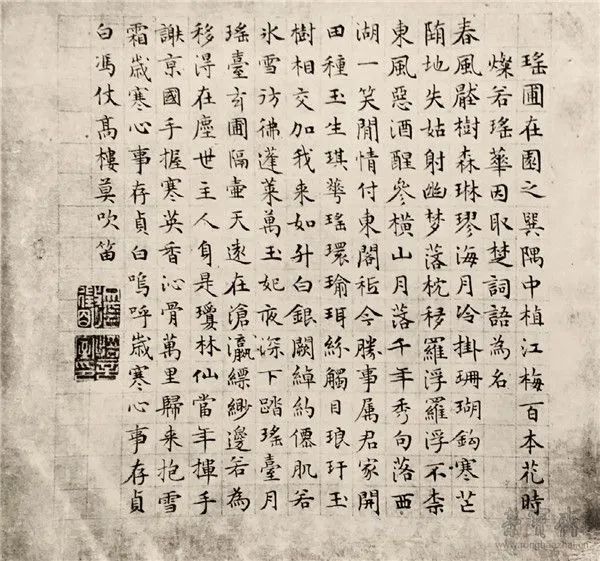 瑤圃在園之巽隅中植江梅百本花時
燦若瑤華因取楚詞語為名
春風壓樹森琳璆海月冷掛珊瑚鈎寒芒
墮地失姑射幽夢落枕移羅浮羅浮不柰
東風惡酒醒參橫山月落千年秀句落西
湖一笑閒情付東閣秪今勝事属君家開
田種玉生琪華瑤環瑜珥絲觸目琅玕玉
樹相交加我来如升白銀闕綽約僊肌若
氷雪彷彿蓬萊萬玉妃夜深下踏瑤臺月
瑤臺玄圃隔壺天遠在滄瀛縹緲邊若為
移得在塵世主人身是瓊林仙當年揮手
謝京國手握寒英香沁骨萬里歸来抱雪
霜歲寒心事存貞白嗚呼歲寒心事存貞
白馮仗高樓莫吹笛
www.rongbaozhai.cn